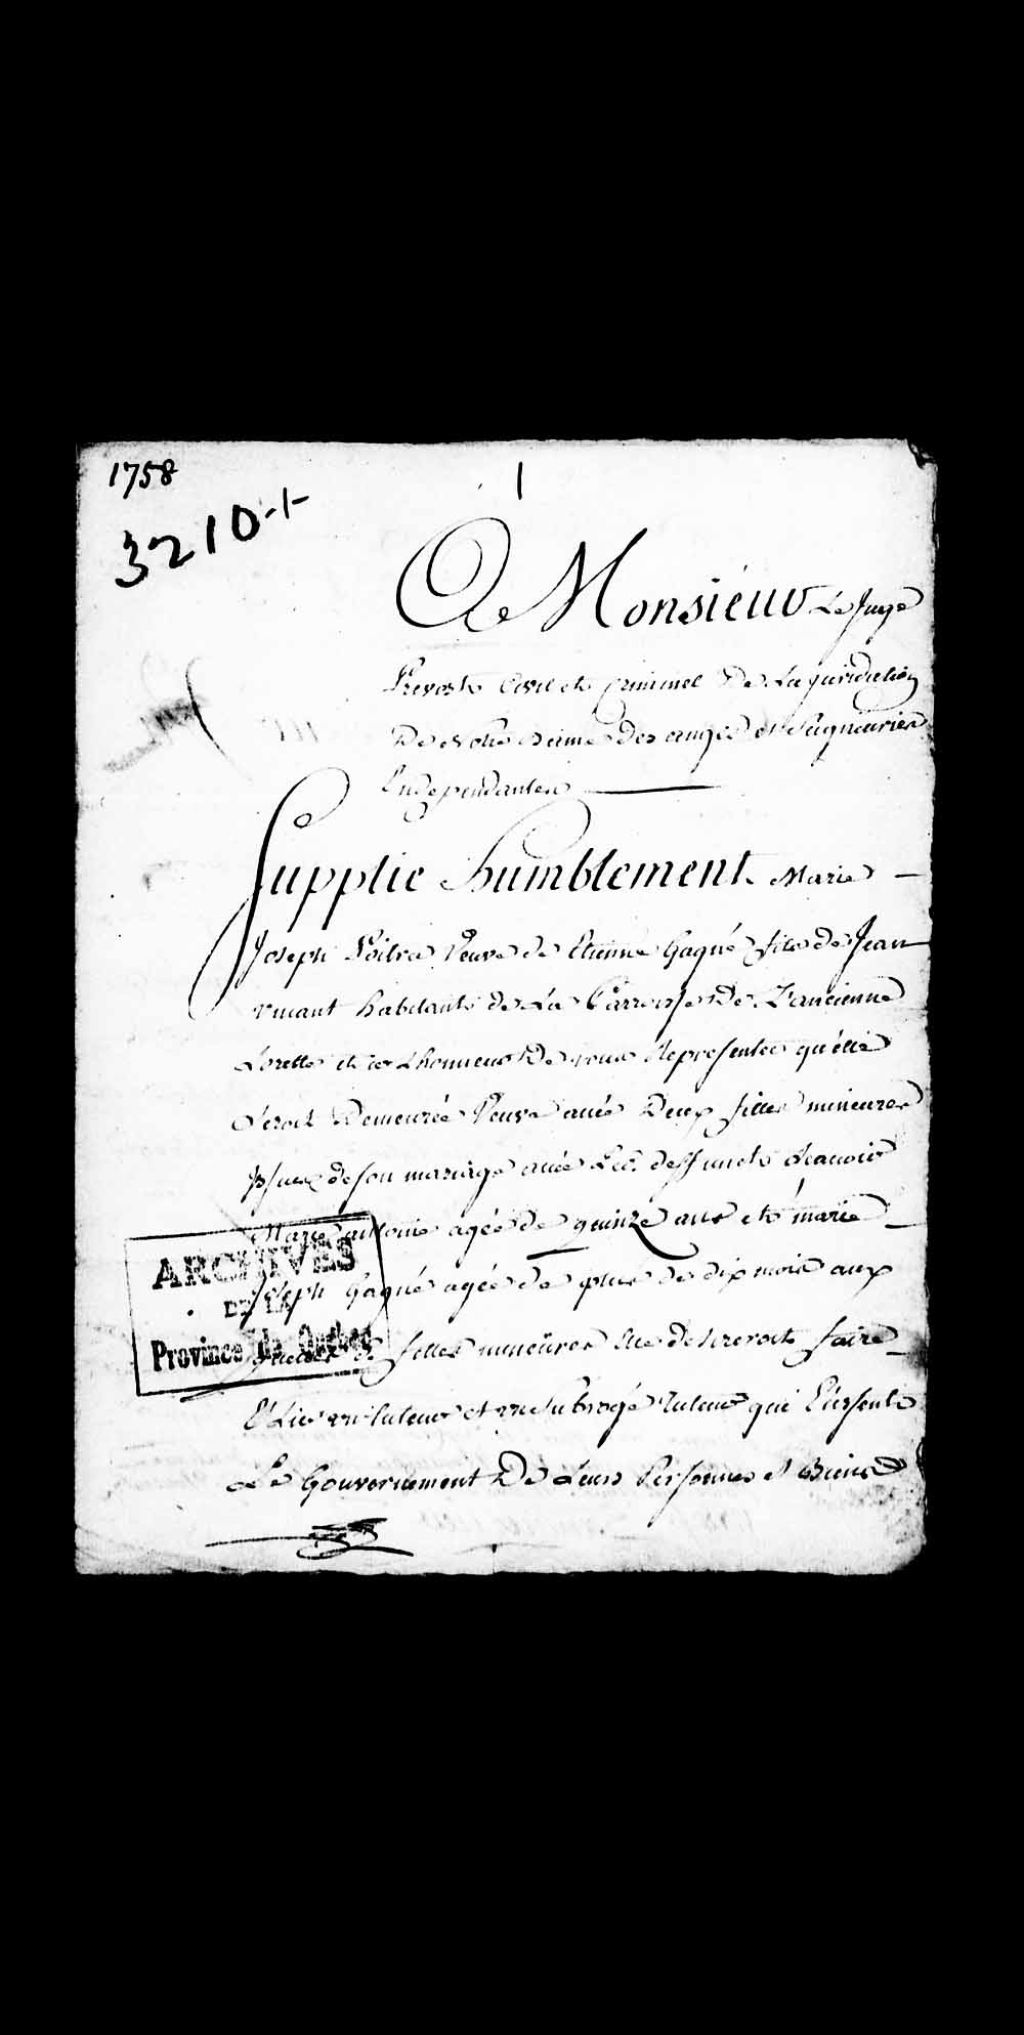 1758
1
3210-1-
A Monsieur Le Juge
Prevost Civil et Criminel De La juridiction
De Notre Dame Des anges et Seigneuries
Independantes
Supplie humblement Marie
Joseph Poitra Veuve de Etienne Gagné fils de Jean
vivant habitant de La Parroisse De L'ancienne
Lorette et a Lhonneur De vous Representer qu'elle
seroit Demeurée Veuve avec Deux filles mineures
issues de son mariage avec Led. deffunct Scavoir
Marie antoine agée de quinze ans et marie
Joseph Gagné agée de plus de dix mois aux
quelles filles mineures Elle desireroit faire
ELire un tuteur et un Subrogé Tuteur qui
Le Gouvernement De Leurs Personnes et Biens
ARCHIVES
DE LA
Province de Québec